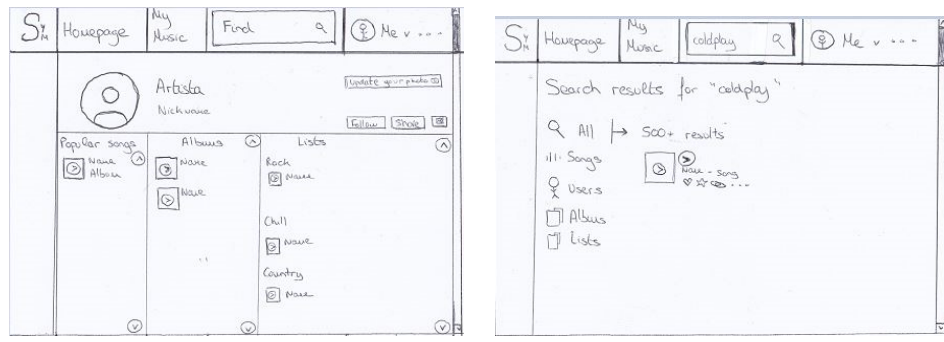 SYM Homepage My Music Find Me v ...
Artista
Nickname
Update your photo
Follow Share
Popular songs
Name
Album
Albums
Name
Name
Lists
Rock
Name
Chill
Name
Country
Name
SYM Homepage My Music coldplay Me v ...
Search results for "coldplay"
All 500+ results
Songs
Users
Albums
Lists
Name - Song
...